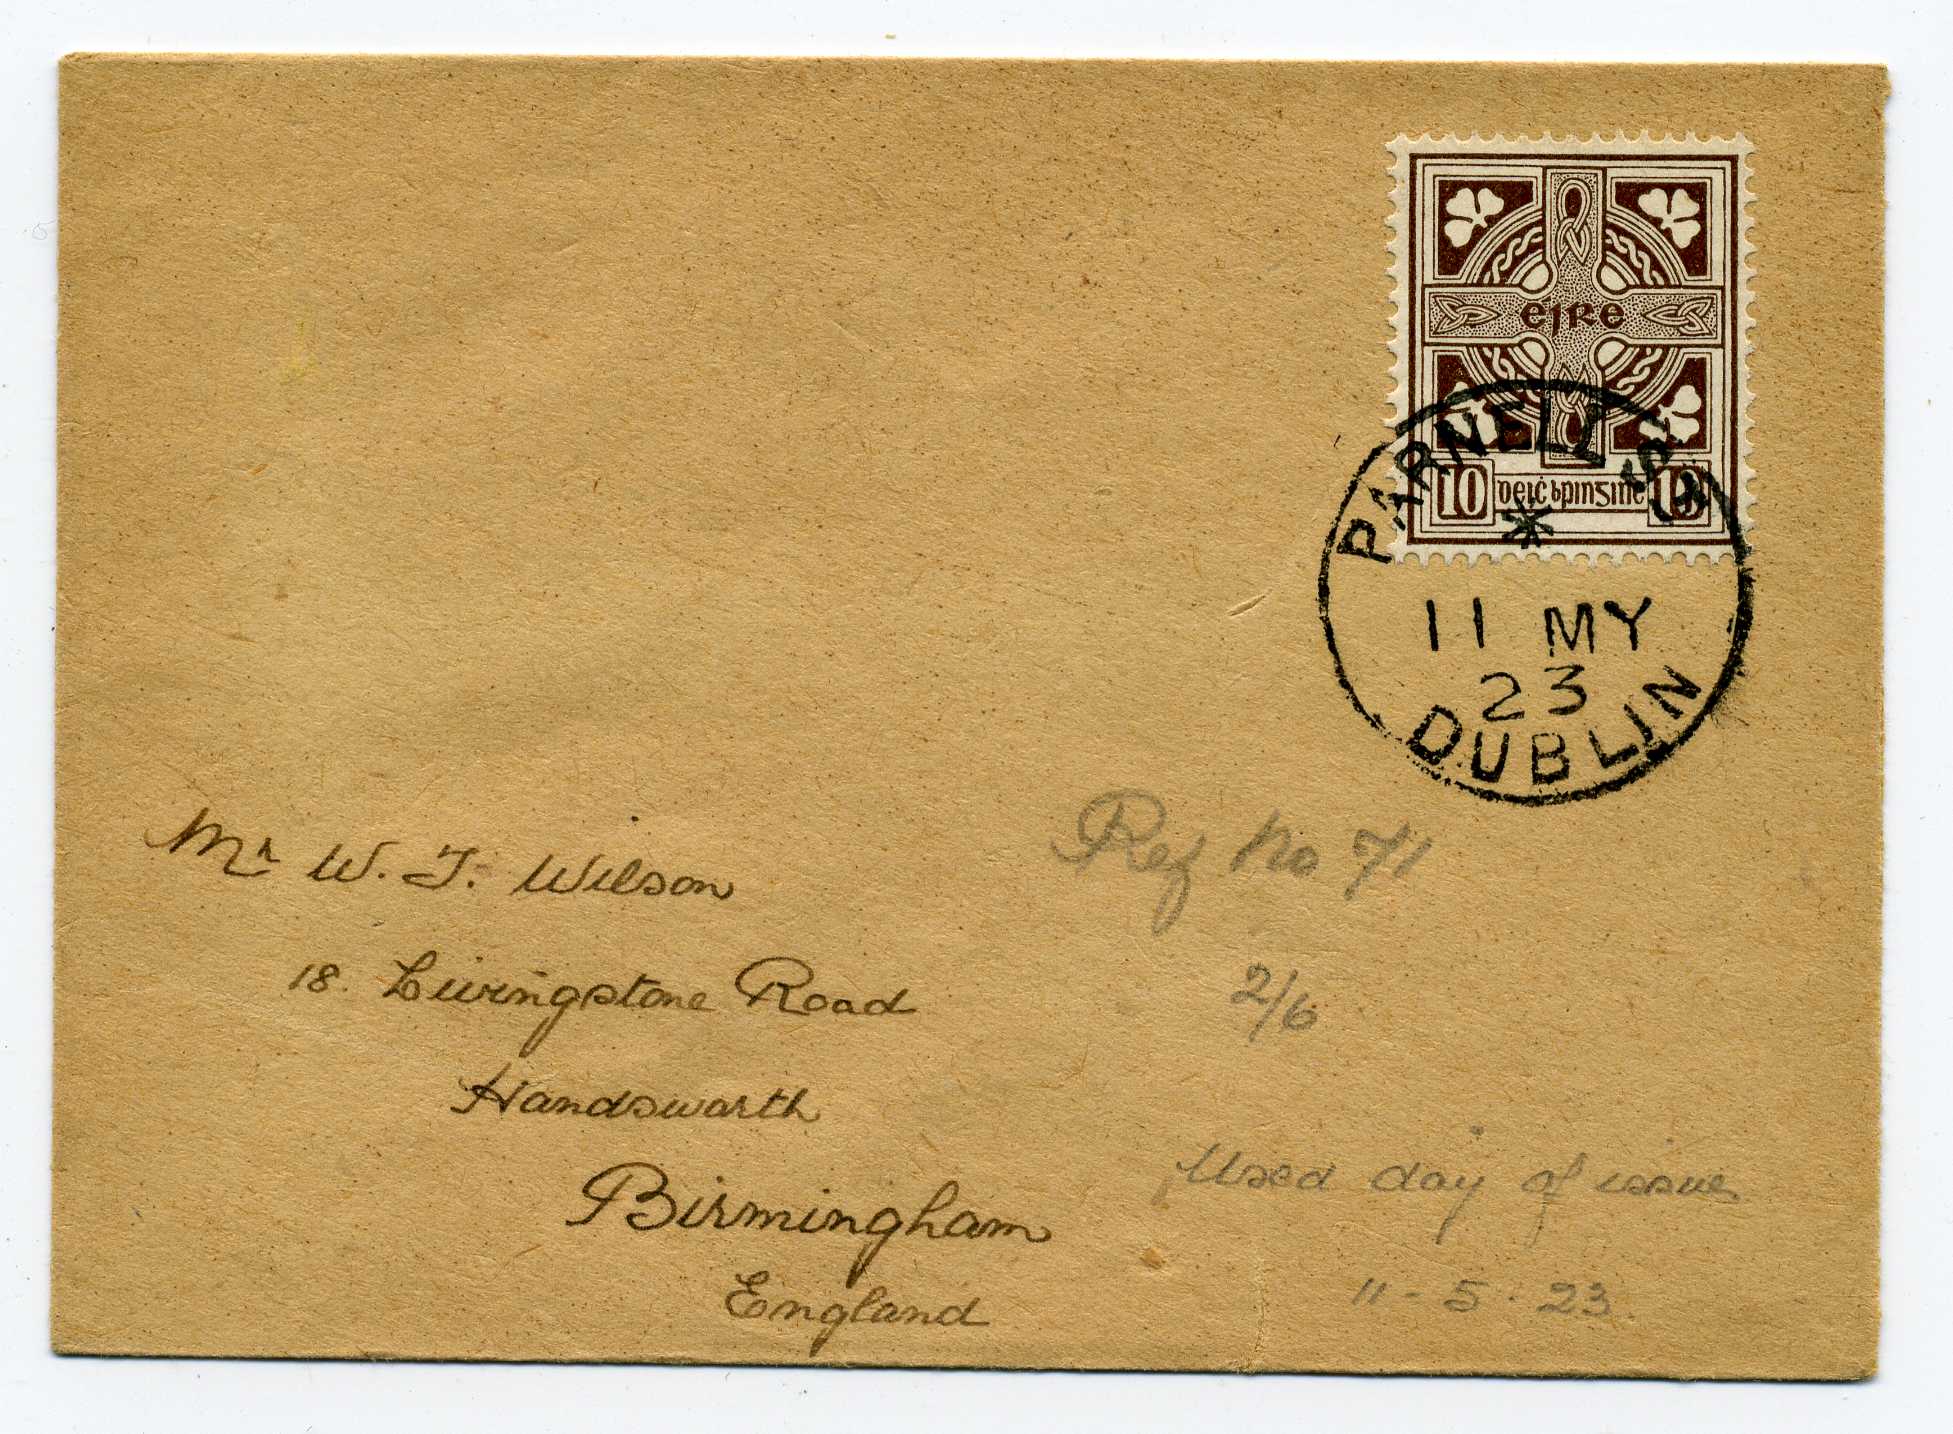 éire
10 deiċ bpinginí 10
PARNELL ST
*
11 MY
23
DUBLIN
Mr W. J. Wilson
18. Livingstone Road
Handsworth
Birmingham
England
Ref No 71
2/6
Used day of issue
11-5-23.